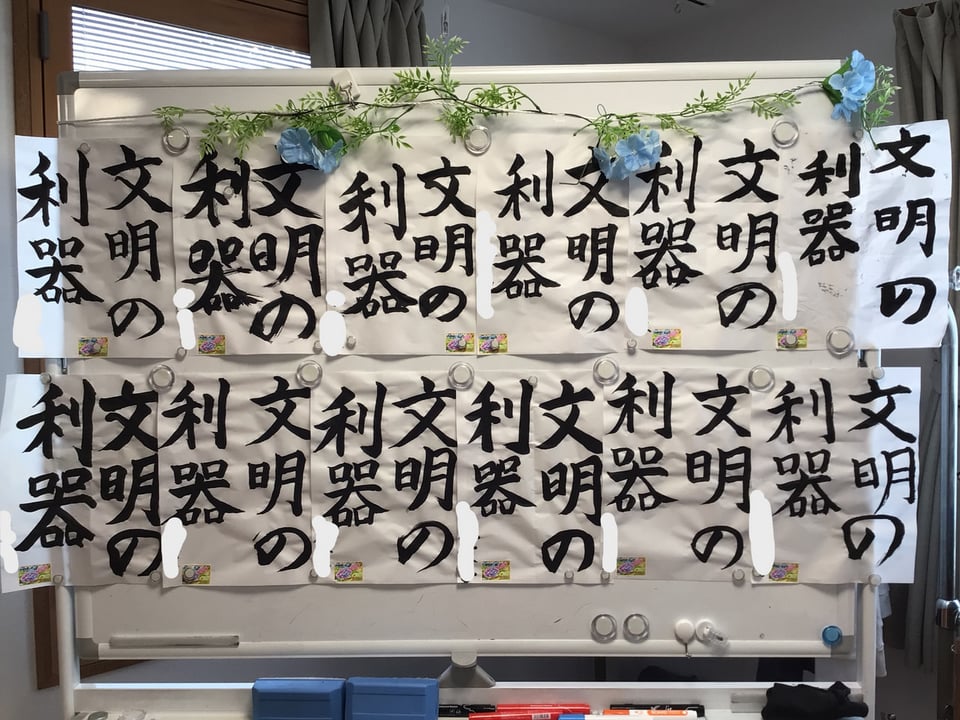 文明の
利器
文明の
利器
文明の
利器
文明の
利器
文明の
利器
文明の
利器
文明の
利器
文明の
利器
文明の
利器
文明の
利器
文明の
利器
文明の
利器